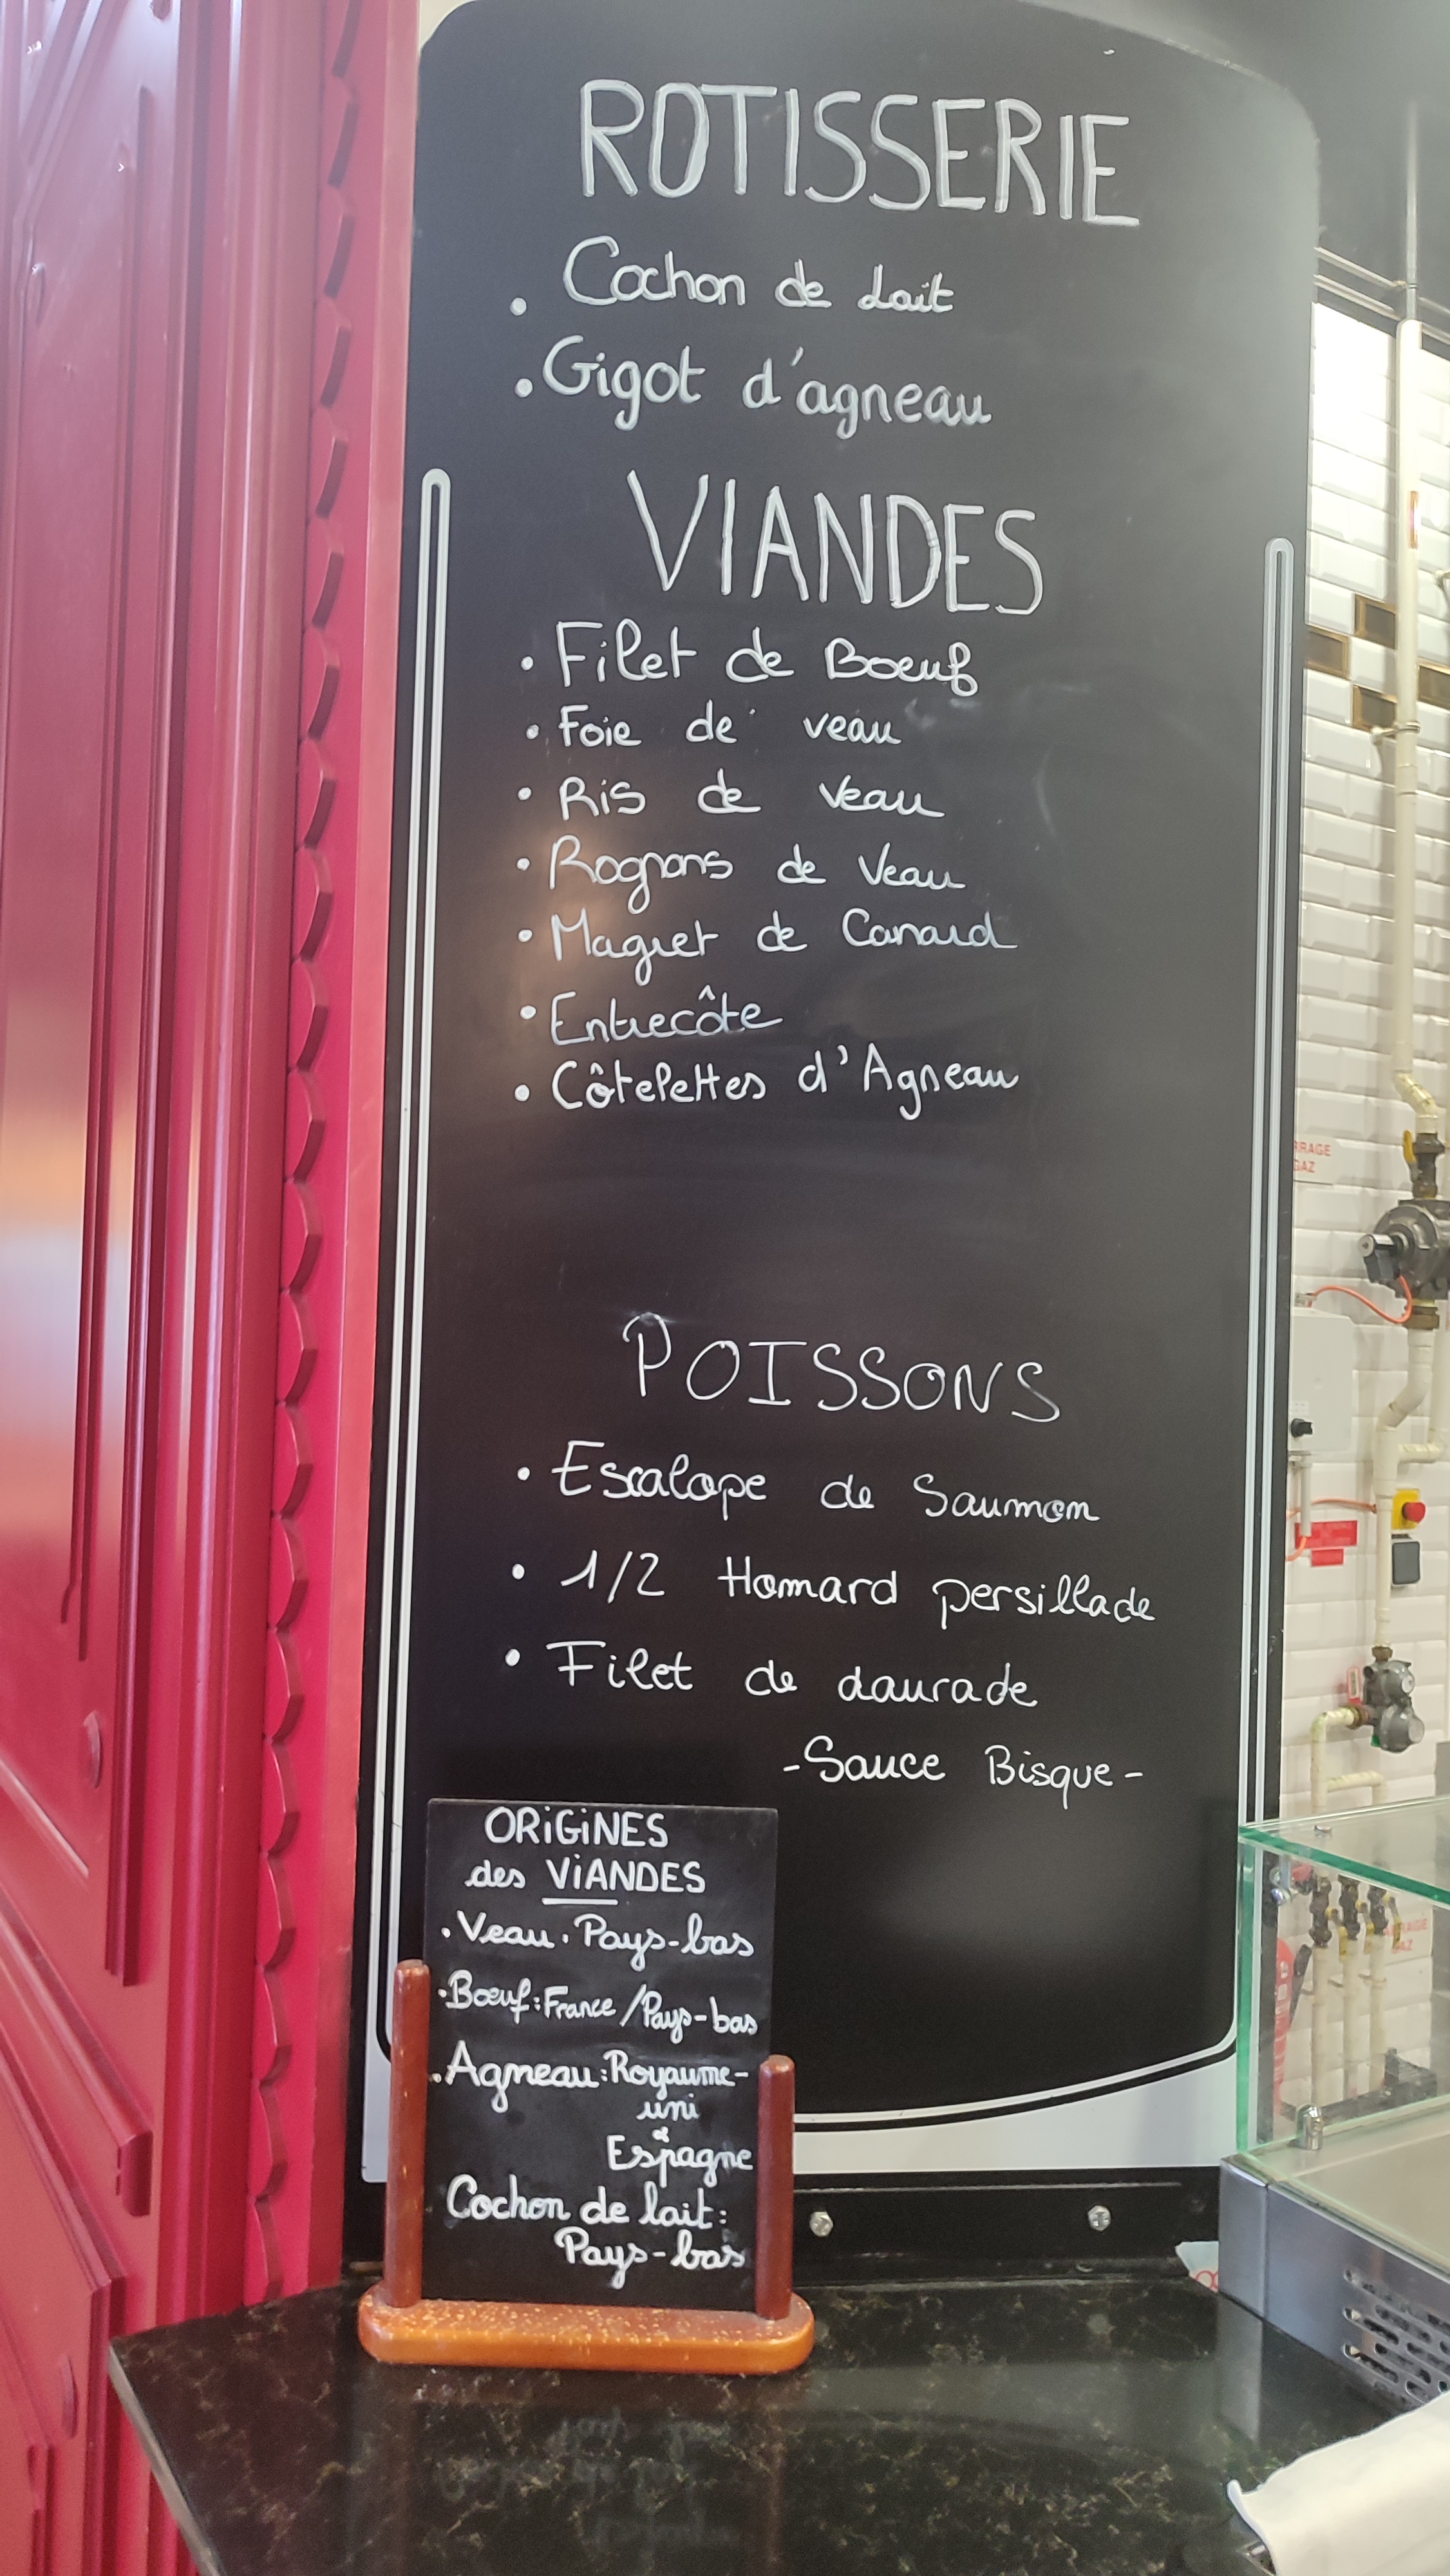 ROTISSERIE
• Cochon de Lait
• Gigot d'agneau
VIANDES
• Filet de Boeuf
• Foie de veau
• Ris de Veau
• Rognons de Veau
• Magret de Canard
• Entrecôte
• Côtelettes d'Agneau
POISSONS
• Escalope de Saumon
• 1/2 Homard persillade
• Filet de daurade
-Sauce Bisque-
ORiGiNES
des ViANDES
• Veau • Pays-bas
• Bœuf : France / Pays-bas
• Agneau : Royaume-
uni
&
Espagne
Cochon de lait :
Pays-bas
GAZ